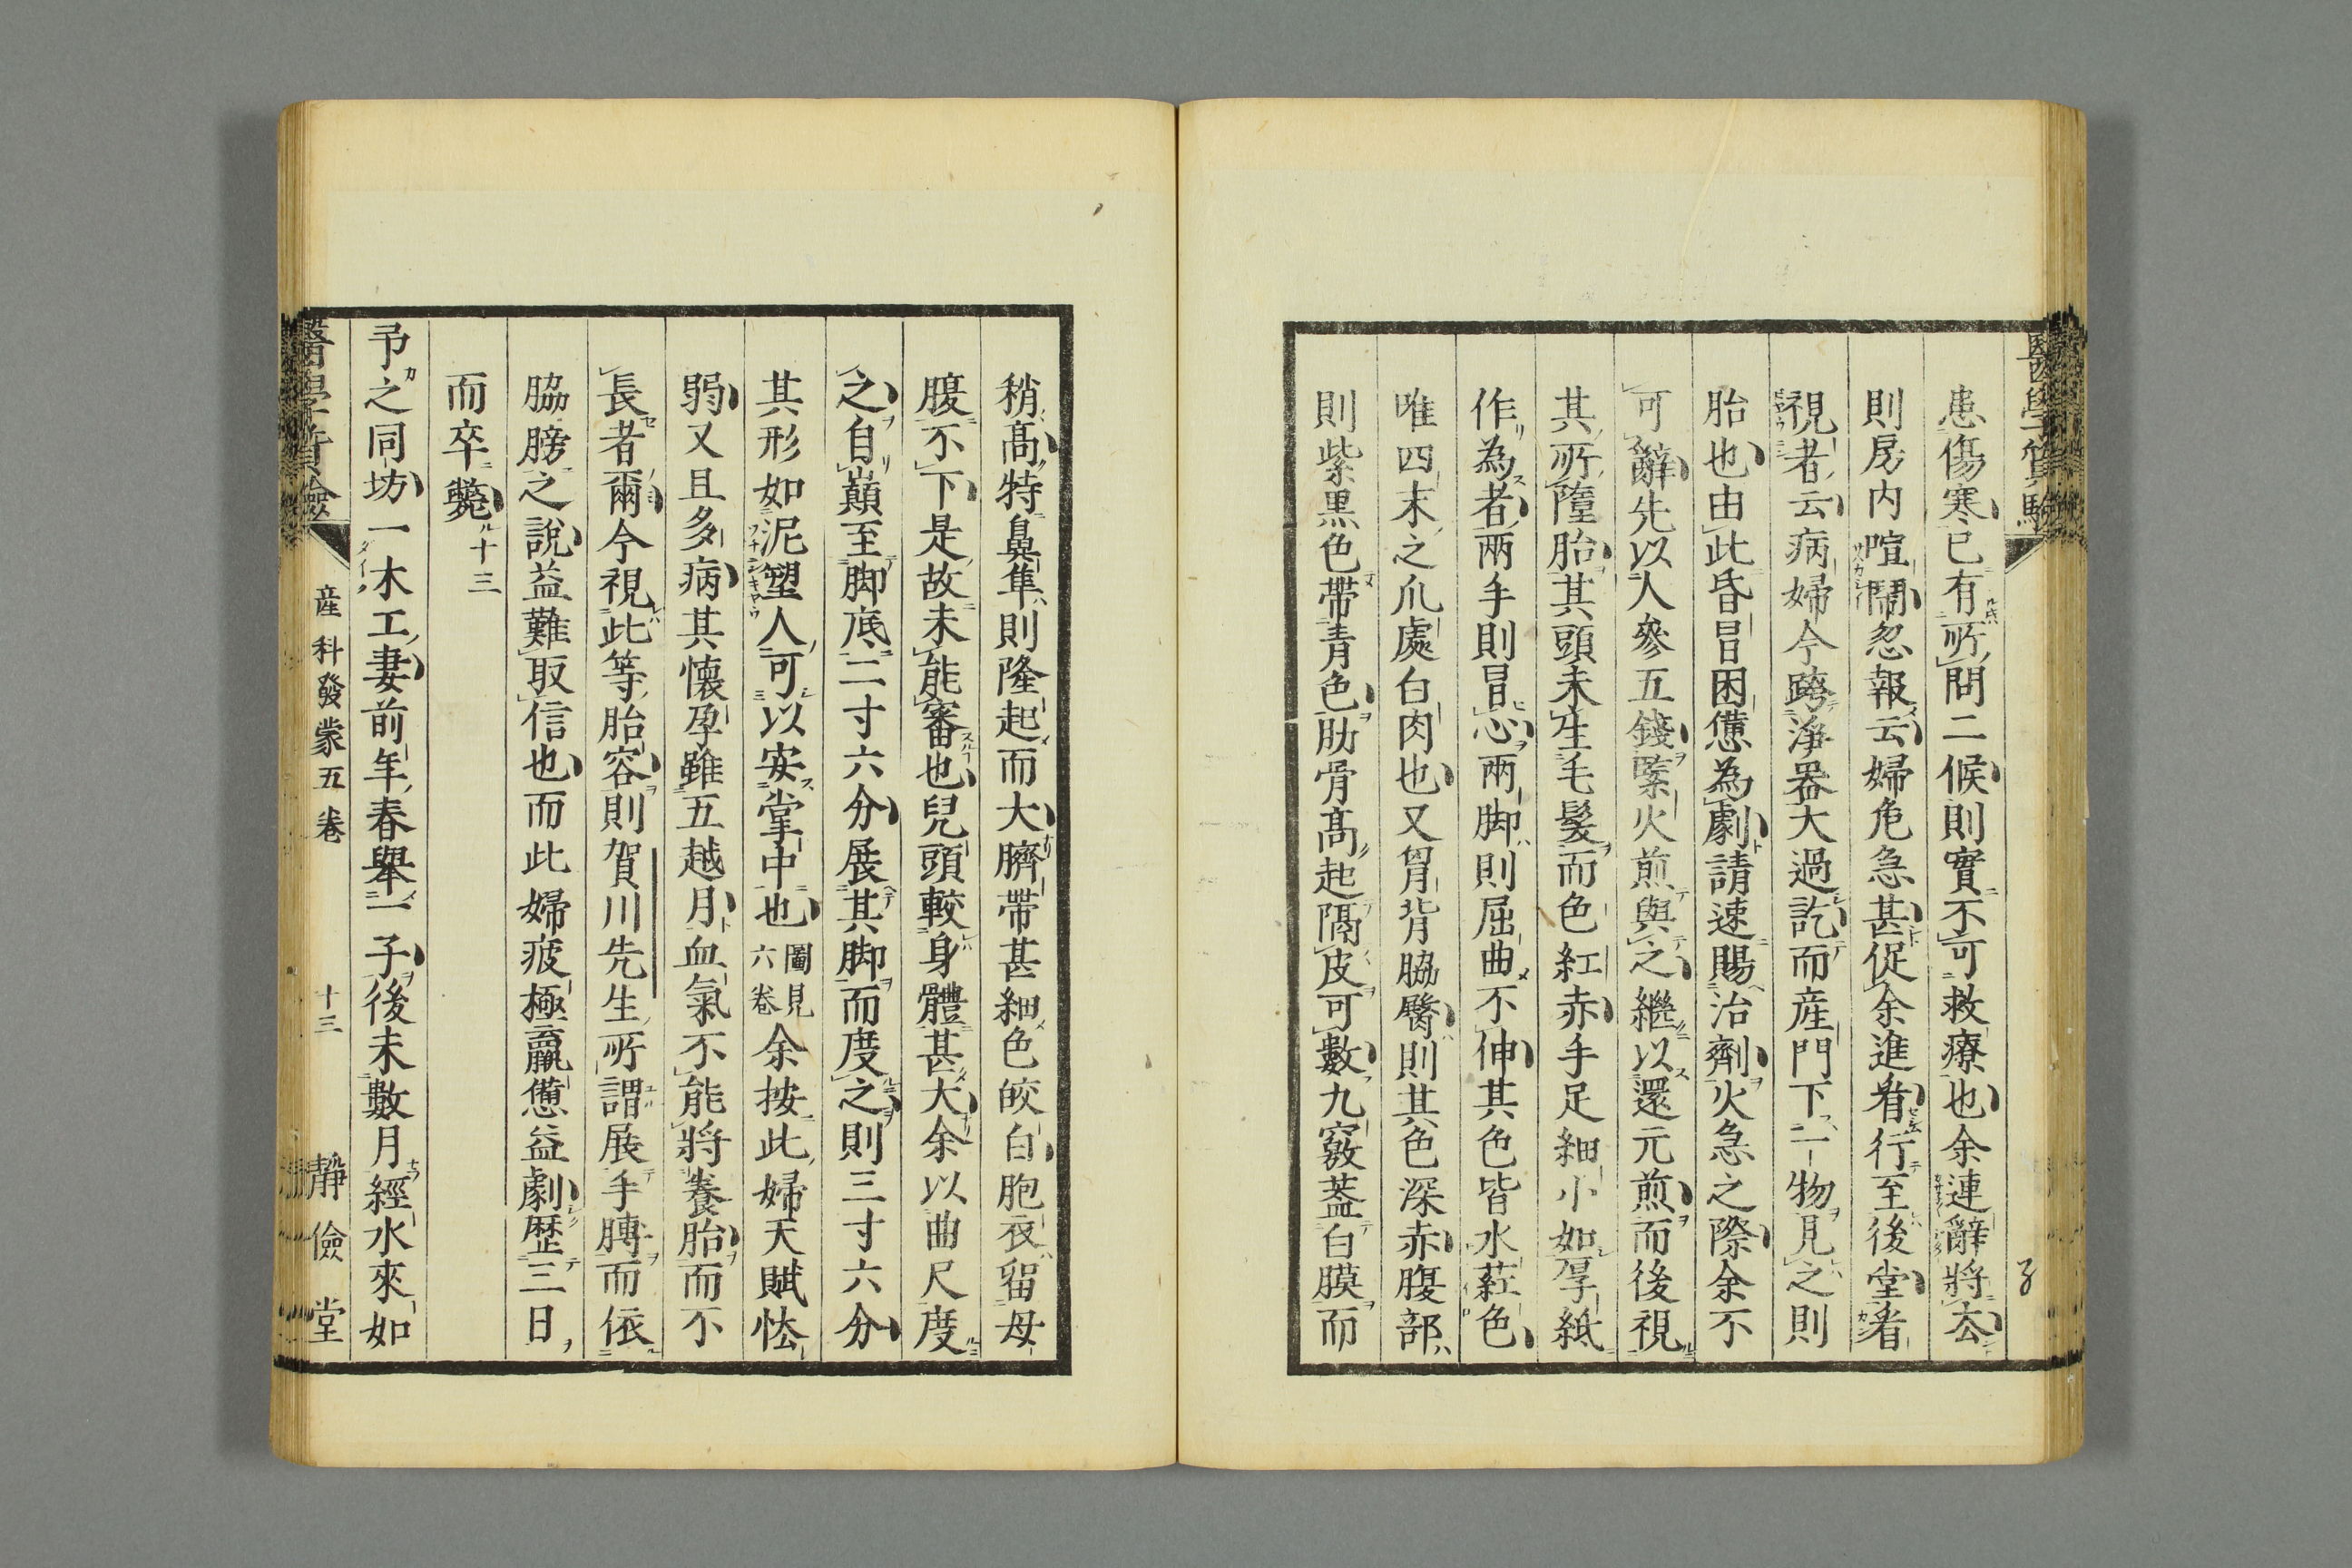 醫學質驗
患傷寒已有所問二候則實不可救療也余連辭將去
則房内喧鬧忽報云婦危急甚促余進着行至後堂看
視者云病婦今跨淨器大過訖而産門下一物見之則
胎也由此昏冒困憊為劇請速賜治劑火急之際余不
可辭先以人參五錢緊火煎與之繼以還元煎而後視
其所隋胎其頭未生毛髮而色紅赤手足細小如厚紙
作為者兩手則冒心兩脚則屈曲不伸其色皆水葒色
唯四末之爪處白肉也又胃背脇臀則其色深赤腹部
則紫黒色帶青色肋骨髙起隔皮可數九竅葢白膜而
稍髙特鼻隼則隆起而大臍帶甚細色皎白胞衣留母
腹不下是故未能審也兒頭較身體甚大余以曲尺度
之自巓至脚底二寸六分展其脚而度之則三寸六分
其形如泥塑人可以安掌中也圖見六卷余按此婦天賦怯
弱又且多病其懷孕雖五越月血氣不能將養胎而不
長者爾今視此等胎容則賀川先生所謂展手膊而依
脇膀之說益難取信也而此婦疲極羸憊益劇歴三日
而卒斃
十三
予之同坊一木工妻前年春舉一子後未數月經水來如
醫學質驗
産科發蒙五卷
十三
靜儉堂